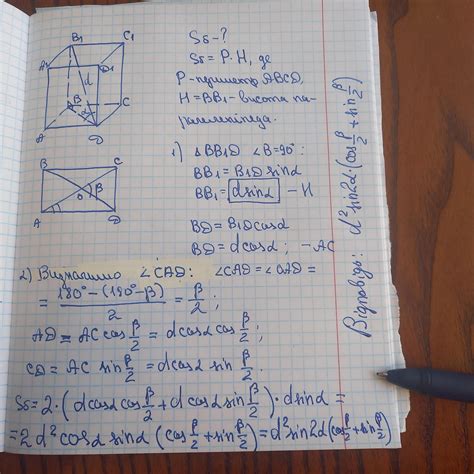 B₁ C₁
A₁ D₁
d
B C
α
A D
B C
O β
A D
Sб - ?
Sб = P·H, де
P - периметр ABCD,
H = BB₁ - висота па-
ралелепіпеда.
1) △ BB₁D ∠B = 90°:
BB₁ = B₁D sinα
BB₁ = dsinα - H
BD = B₁D cosα
BD = d cosα; - AC
2) Визначимо ∠CAD: ∠CAD = ∠OAD =
= (180° - (180° - β))/2 = β/2;
AD = AC cos β/2 = d cosα cos β/2;
CD = AC sin β/2 = d cosα sin β/2.
Sб = 2·(d cosα cos β/2 + d cosα sin β/2)·d sinα =
= 2d² cosα sinα (cos β/2 + sin β/2) = d² sin2α (cos β/2 + sin β/2)
Відповідь: d² sin2α (cos β/2 + sin β/2)